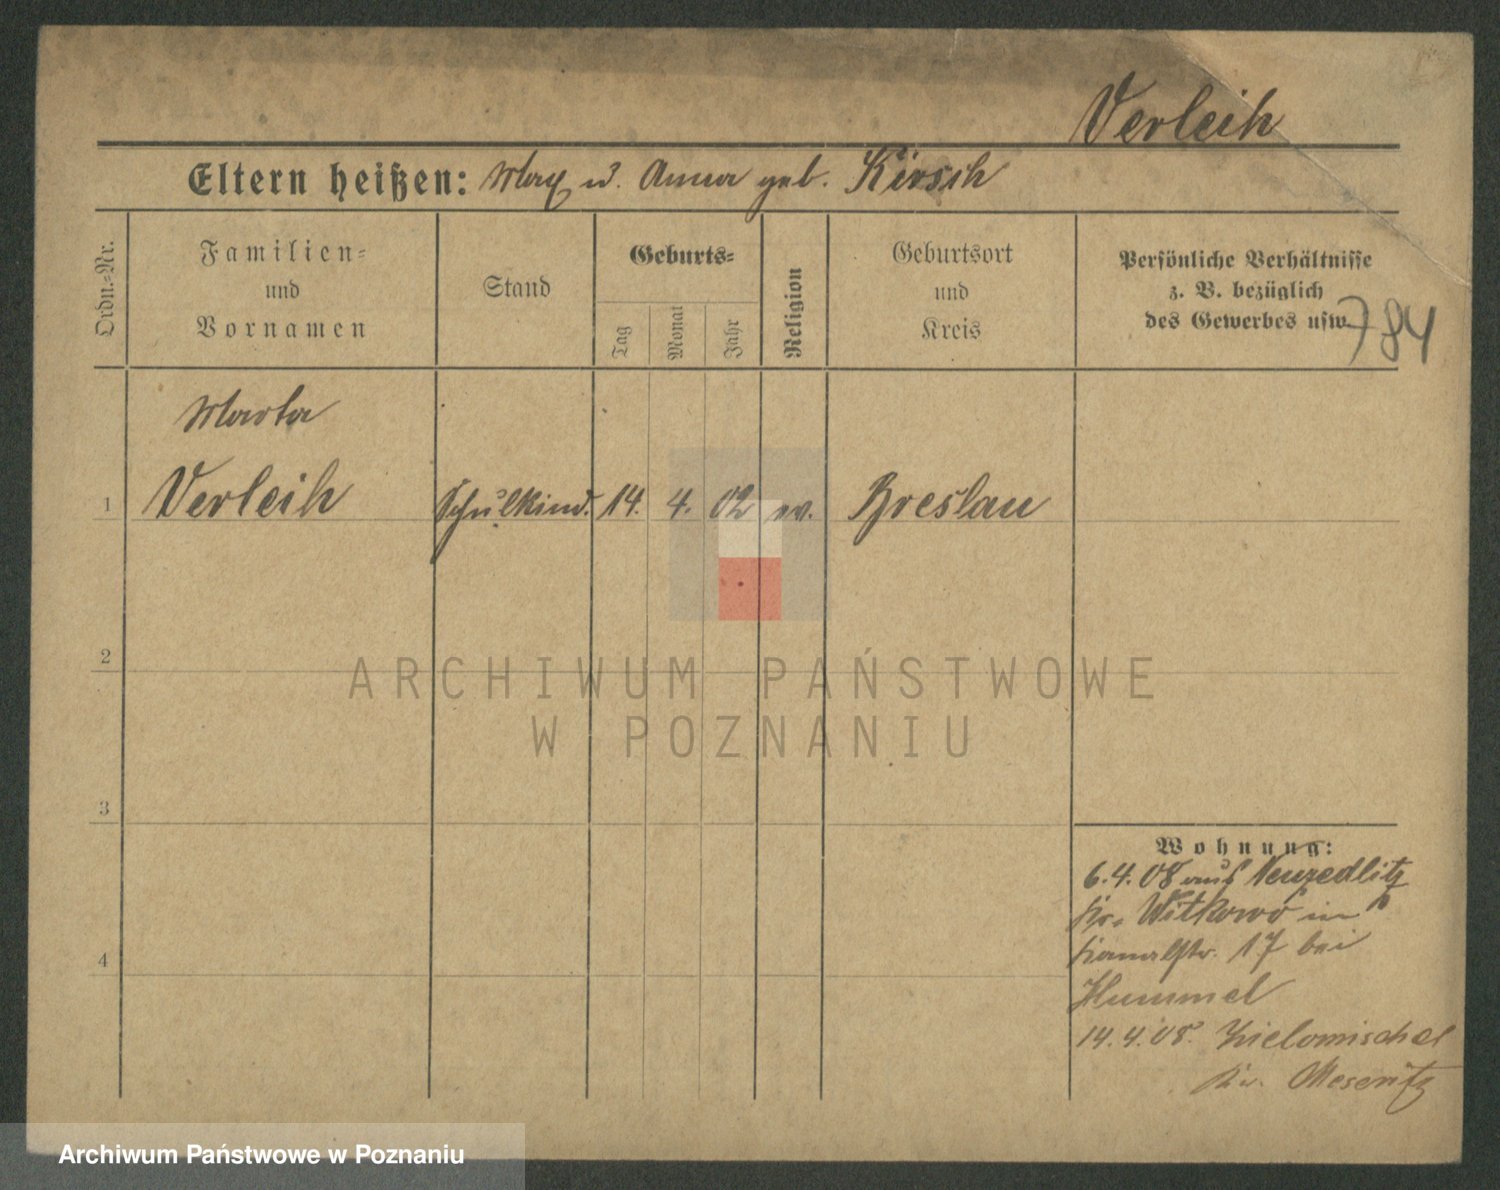 Verleih
Eltern heißen: Max u. Anna geb. Kirsch
Ordn.-Nr.
Familien-
und
Vornamen
Stand
Geburts-
Tag
Monat
Jahr
Religion
Geburtsort
und
Kreis
Persönliche Verhältnisse
z. B. bezüglich
des Gewerbes usw.
784
Marta
1 Verleih Schulkind. 14. 4. 02 ev. Breslau
2
ARCHIWUM PAŃSTWOWE
W POZNANIU
3
Wohnung:
6.4.08 aus Neuzedlitz
Kr. Witkowo in
4
Kanalstr. 17 bei
Hummel
14.4.08.
Kr. Meseritz
Archiwum Państwowe w Poznaniu